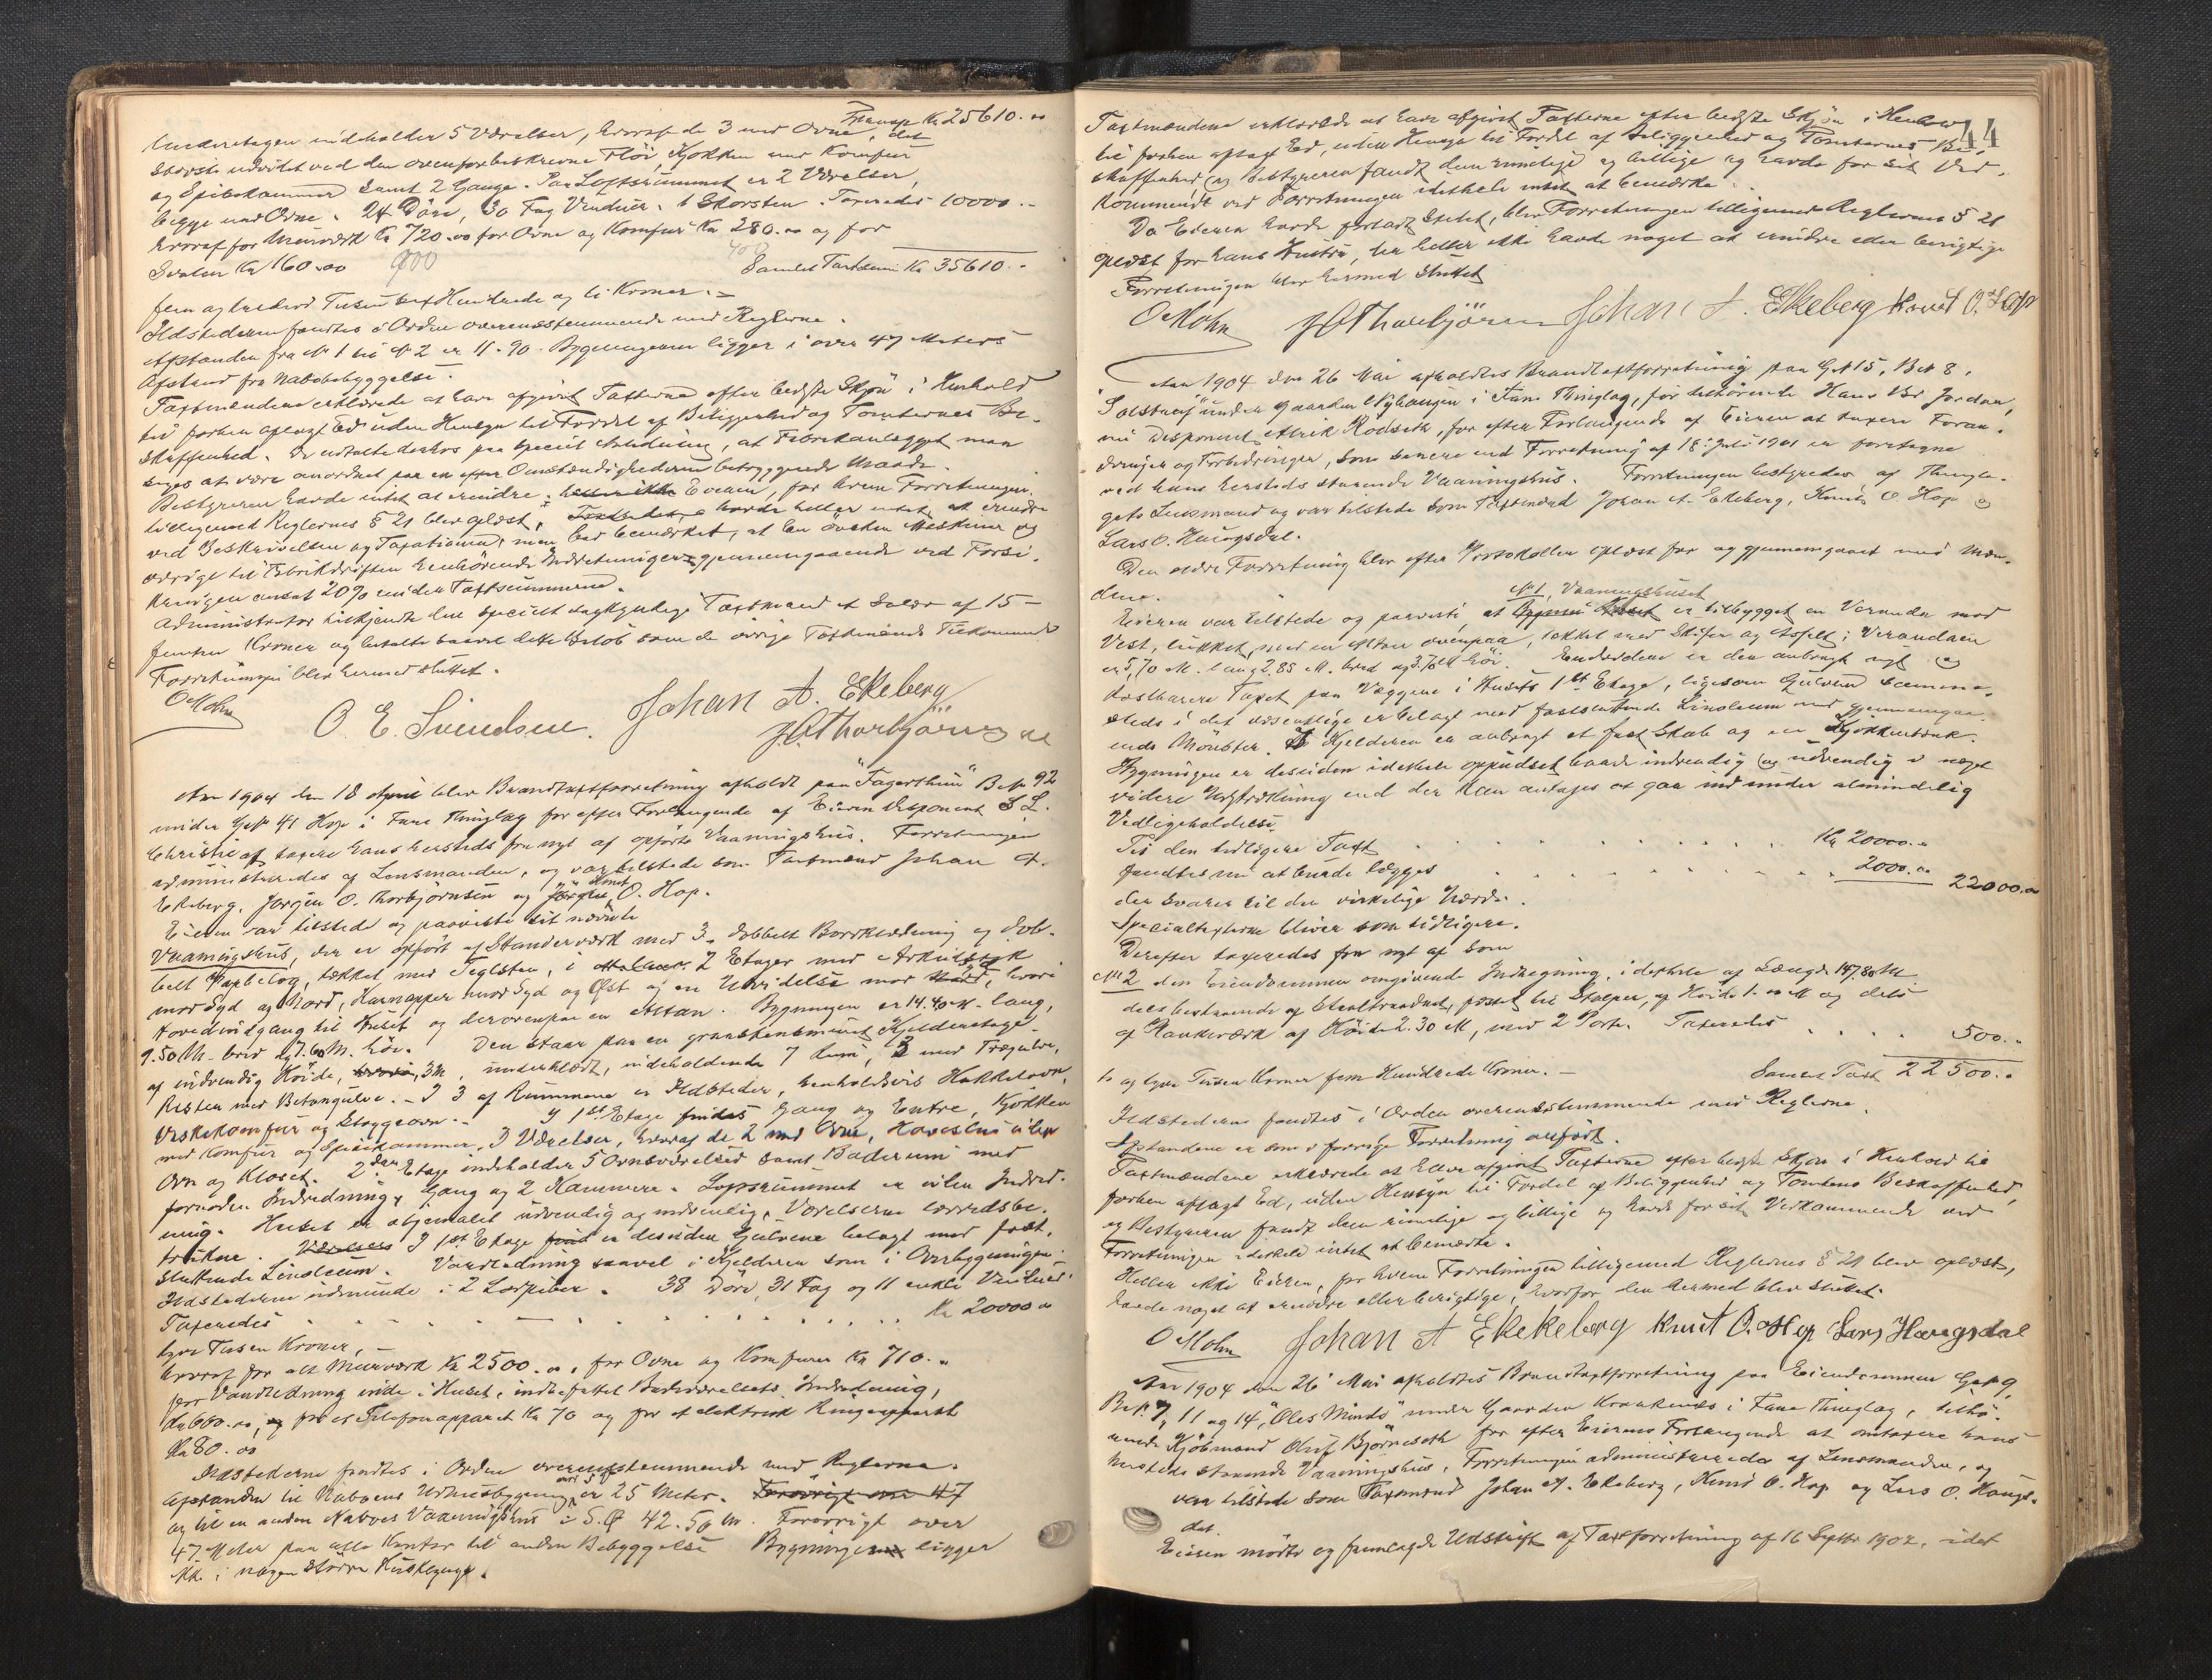 Transp. Kr. 25610.00
Underetagen indeholder 5 Værelser, hvoraf de 3 med Ovne, det
største udvidet ved den ovenforbeskrevne Fløi, Kjøkken med Komfur
og Spisekammer samt 2 Gange. Paa Loftsrummet er 2 Værelser,
begge med Ovne. 24 Døre, 30 Fag Vinduer. 1 Skorsten. Taxeredes 10000.-
hvoraf for Murværk Kr 720.00 for Ovne og Komfur Kr 280.00 og for
Svaler Kr 160.00 Samlet Taxtsum Kr 35610.-
fem og tredive Tusen sex Hundrede og ti Kroner.-
Ildstederne fandtes i Orden overensstemmende med Reglerne.
Afstanden fra No 1 til No 2 er 11.90. Bygningerne ligger i over 47 Meters
Afstand fra Nabobebyggelse.
Taxtmændene erklærede at have afgivet Taxterne efter bedste Skjøn i Henhold
til forhen aflagt Ed uden Hensyn til Fordel af Beliggenhed og Tomternes Be-
skaffenhed. De udtalte derhos paa speciel Anledning, at Fabrikanlægget maa
siges at være anordnet paa en efter Omstændighederne betryggende Maade.
Bestyreren havde intet at erindre. heller ikke Eieren, for hvem Forretningen
tilligemed Reglernes § 21 blev oplæst, havde heller intet at erindre
ved Beskrivelsen og Taxationen, men bad bemærket, at han ønsker Maskiner og
øvrige til Fabrikdriften henhørende Indretninger gjennemgaaende ved Forsi-
kringen ansat 20% under Taxtsummerne.
Administrator tilkjendte den specielt sagkyndige Taxtmand et Salær af 15 -
femten Kroner og betalte saavel dette Beløb som de øvrige Taxtmænds Tilkommende
Forretningen blev hermed sluttet.
O Mohn
O. E. Svendsen. Johan A. Ekeberg
J O Thorbjörnsen
Aar 1904 den 18 April blev Brandtaxtforretning afholdt paa "Fagerthun" B.No 92
under G.No 41 Hop i Fane Thinglag for efter Forlangende af Eieren Disponent S. L.
Christie at taxere hans hersteds fra nyt af opførte Vaaningshus. Forretningen
administreredes af Lensmanden, og var tilstede som Taxtmænd Johan A.
Ekeberg, Jørgen O. Thorbjørnsen og Jørgen Knut O. Hop.
Eieren var tilstede og paaviste sit nævnte
Vaaningshus, der er opført af Standerværk med 3. dobbelt Bordklædning og dob-
belt Papbelæg, tækket med Teglsten, i 2 Etager med Arkvistork
mod Syd og Nord, Karnapper mod Syd og Øst og en Udvidelse mod Nord, hvori
Hovedindgang til Huset og derovenpaa en Altan. Bygningen er 14.40 M. lang,
9.50 M. bred og 7.60 M. høi. Den staar paa en graastensmuret Kjelderetage
af indvendig Høide, 3 M, underklædt, indeholdende 7 Rum, 3 med Trægulve,
Resten med Betongulve. - I 3 af Rummene er Ildsteder, henholdsvis Kakkelovn,
Vaskekomfur og Bryggeovn.- I 1ste Etage findes Gang og Entre, Kjøkken
med Komfur og Spisekammer, 3 Værelser, hvoraf de 2 med Ovne, Havestue uden
Ovn og Kloset. 2den Etage indeholder 5 Ovnsværelser samt Baderum med
fornøden Indredning, Gang og 2 Kammere. Loftsrummet er uden Indred-
ning. Huset er oljemalet udvendig og indvendig, Værelserne lærredsbe-
trukne. Værelsers I 1ste Etage er desuden Gulvene belagt med fast-
sluttende Linoleum. Vandledning saavel i Kjelderen som i Overbygningen.
Ildstederne udmunde i 2 Lufpiber. 38 Døre, 31 Fag og 11 enkle Vinduer
Taxeredes . . . . . Kr 20000.00
tyve Tusen Kroner,-
hvoraf for alt Murværk Kr 2500.00, for Ovne og Komfurer Kr 710.00
for Vandledning inde i Huset, indbefattet Badeværelsets Indredning,
Kr 600.00, og for et Telefonapparat Kr 70 og for et elektrisk Ringeapparat
Kr 80.00
Ildstederne fandtes i Orden overensstemmende med Reglerne.
Afstanden til Naboens Udhusbygning er 25 Meter. Forøvrigt over 47
og til en anden Nabos Vaaningshus i S.Ø 42.50 M. Forøvrigt over
47 Meter paa alle Kanter til anden Bebyggelse. Bygningen ligger
ikke i nogen større Husklynge.
44
Taxtmændene erklærede at have afgivet Taxterne efter bedste Skjøn i Henhold
til forhen aflagt Ed, uden Hensyn til Fordel af Beliggenhed og Tomternes Be-
skaffenhed, og Bestyreren fandt dem rimelige og billige og havde for sit Ved-
kommende ved Forretningen idethele intet at bemærke.
Da Eieren havde forladt Stedet, blev Forretningen tilligemed Reglernes § 21
oplæst for hans Hustru, der heller ikke havde noget at erindre eller berigtige
Forretningen blev hermed sluttet
O Mohn J O Thorbjörnsen Johan A. Ekeberg Knut O. Hop
Aar 1904 den 26 Mai afholdtes Brandtaxtforretning paa G.No 15, B.No 8,
"Solstuen" under Gaarden Nyhaugen i Fane Thinglag, før tilhørende Hans Br Jordan,
nu Disponent Alrik Rönseth, for efter Forlangende af Eieren at taxere Foran-
dringer og Forbedringer, som senere end Forretning af 18 Juli 1901 er foretagne
ved hans hersteds staaende Vaaningshus. Forretningen bestyredes af Thingla-
gets Lensmand og var tilstede som Taxtmænd Johan A. Ekeberg, Knut O. Hop og
Lars O. Haugsdal.
Den ældre Forretning blev efter Protokollen oplæst for og gjennemgaaet med Mæn-
dene.
Eieren var tilstede og paaviste, at No 1, Vaaningshuset er tilbygget en Veranda mod
Vest, lukket, med en Altan ovenpaa, tækket med Skifer og Asfelt; Verandaen
er 5,70 M. lang 2.85 M. bred og 3.70 M høi. Endvidere er der anbragt nyt og
kostbarere Tapet paa Væggene i Husets 1ste Etage, ligesom Gulvene samme-
steds i det væsentlige er belagt med fastsluttende Linoleum med gjennemgaa-
ende Mönster. I Kjelderen er anbragt et fast Skab og en Kjøkkenbænk.
Bygningen er desuden idethele oppudset baade indvendig og udvendig i noget
videre Udstrækning end der kan antages at gaa ind under almindelig
Vedligeholdelse.
Til den tidligere Taxt . . . . Kr 20000.00
fandtes nu at burde lægges . . . . 2000.00 22000.00
der svarer til den virkelige Værdi.
Specialtaxterne bliver som tidligere.
Derefter taxeredes fra nyt af som
No 2 den Eiendommen omgivende Indhegning, idethele af Længde 147.80 M
dels bestaaende af Staaltraadnet, fæstet til Stolper, af Høide 1.00 M og dels
af Plankeværk af Høide 2.30 M, med 2 Porte. Taxeredes . . . . 500.00
to og tyve Tusen Kroner fem Hundrede Kroner.- Samlet Taxt 22500.00
Ildstederne fandtes i Orden overensstemmende med Reglerne.
Afstandene er som i forrige Forretning anført.
Taxtmændene erklærede at have afgivet Taxterne efter bedste Skjøn i Henhold til
forhen aflagt Ed, uden Hensyn til Fordel af Beliggenhed og Tomtens Beskaffenhed,
og Bestyreren fandt dem rimelige og billige og havde for sit Vedkommende ved
Forretningen idethele intet at bemærke.
Heller ikke Eieren, for hvem Forretningen tilligemed Reglernes § 21 blev oplæst,
havde noget at erindre eller berigtige, hvorfor den hermed blev sluttet.
O Mohn Johan A Ekekeberg Knut O. Hop Lars Haugsdal
Aar 1904 den 26 Mai afholdtes Brandtaxtforretning paa Eiendommen G.No 9,
B.No 7, 11 og 14, "Oles Minde" under Gaarden Kraakenes i Fane Thinglag, tilhø-
rende Kjøbmand Oluf Bjørneseth for efter Eierens Forlangende at omtaxere hans
hersteds staaende Vaaningshus. Forretningen administreredes af Lensmanden, og
var tilstede som Taxtmænd Johan A. Ekeberg, Knud O. Hop og Lars O. Haugs-
dal.
Eieren mødte og fremlagde Udskrift af Taxtforretning af 16 Septbr 1902, idet